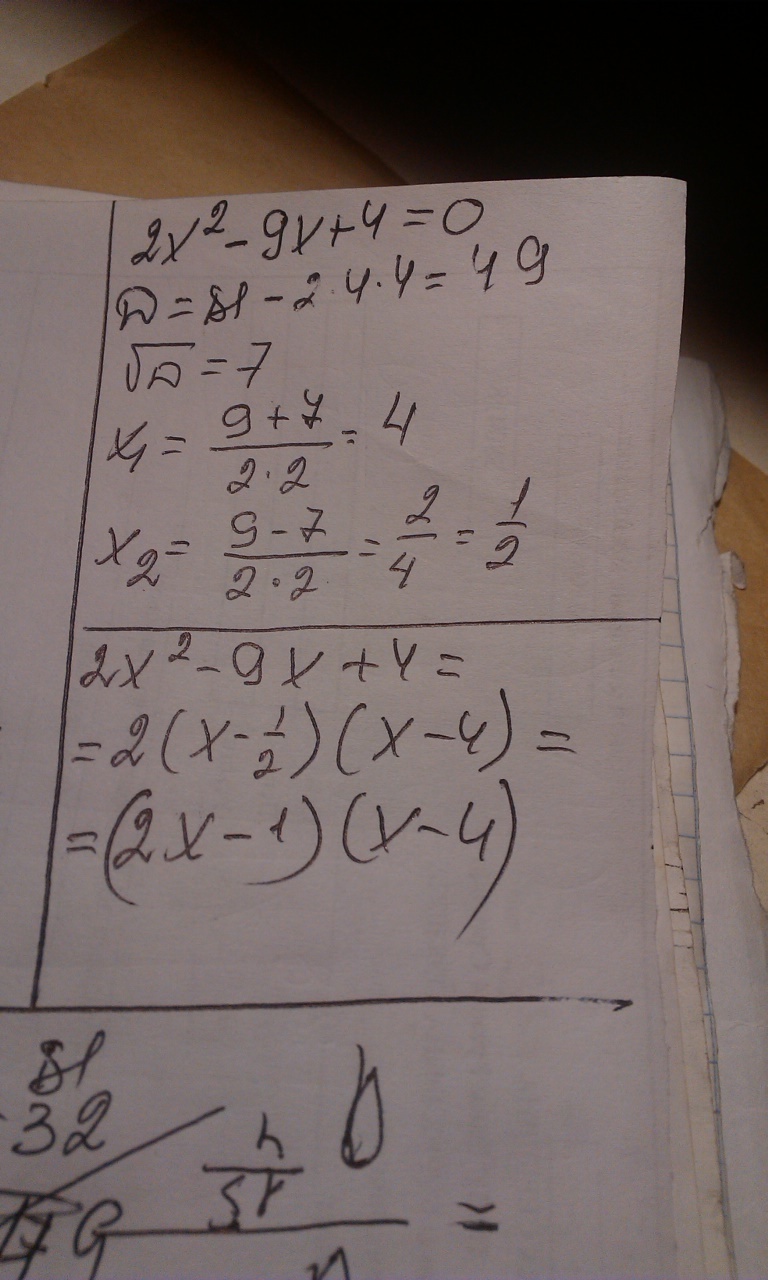 2x² - 9x + 4 = 0
D = 81 - 2·4·4 = 49
√D = 7
x₁ = (9 + 7)/(2·2) = 4
x₂ = (9 - 7)/(2·2) = 2/4 = 1/2
2x² - 9x + 4 =
= 2(x - 1/2)(x - 4) =
= (2x - 1)(x - 4)
81
32
=